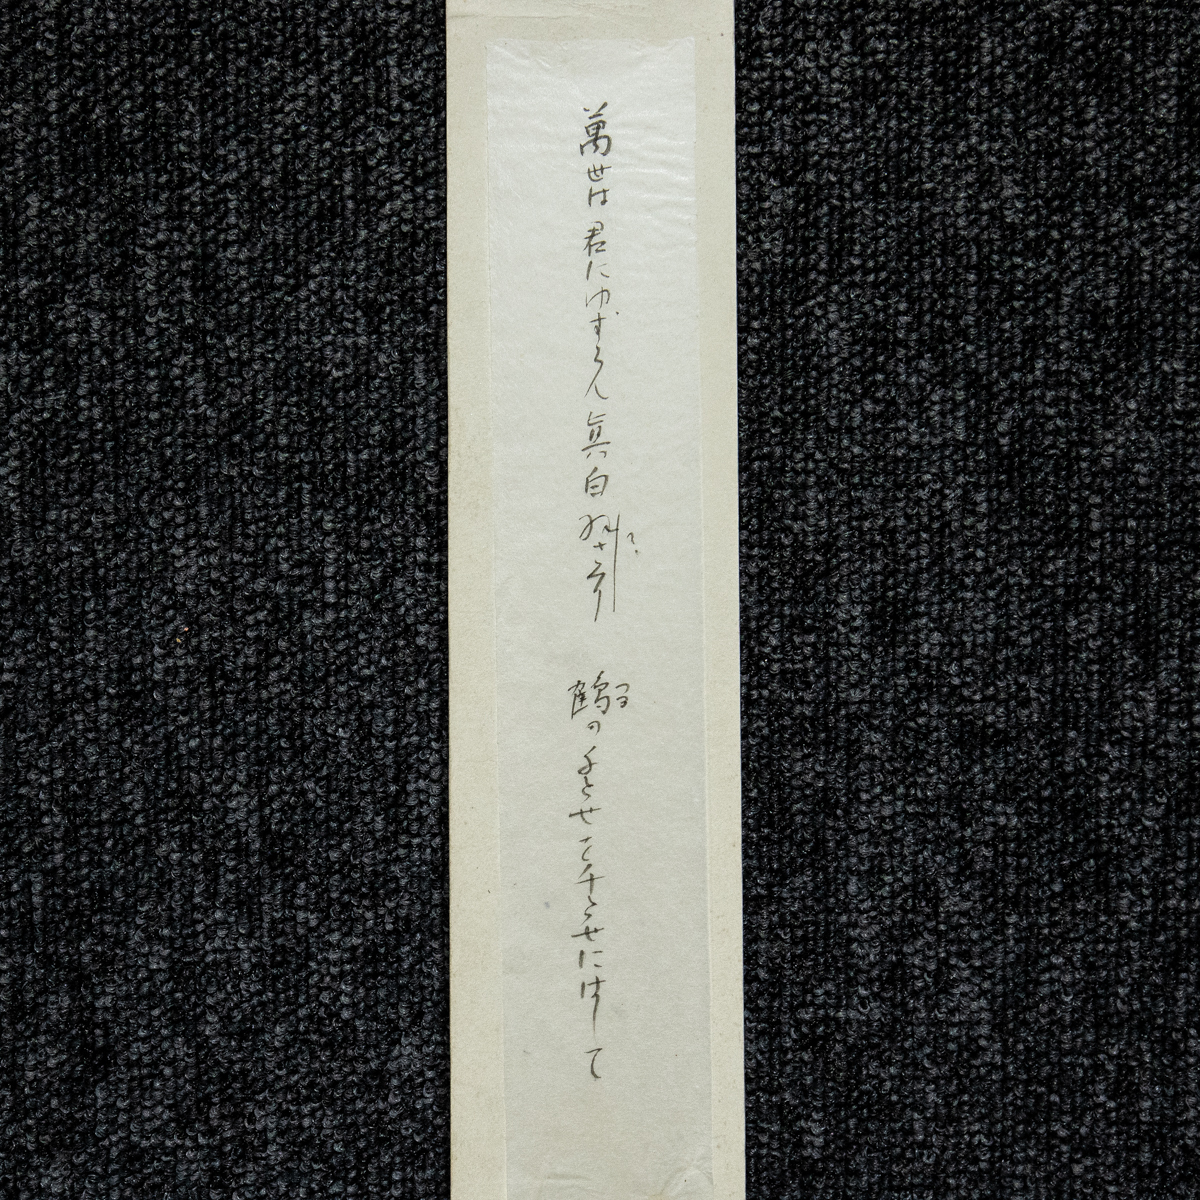 萬世は君にゆずらん真白
鶴の千とせ千とせにはして
つる